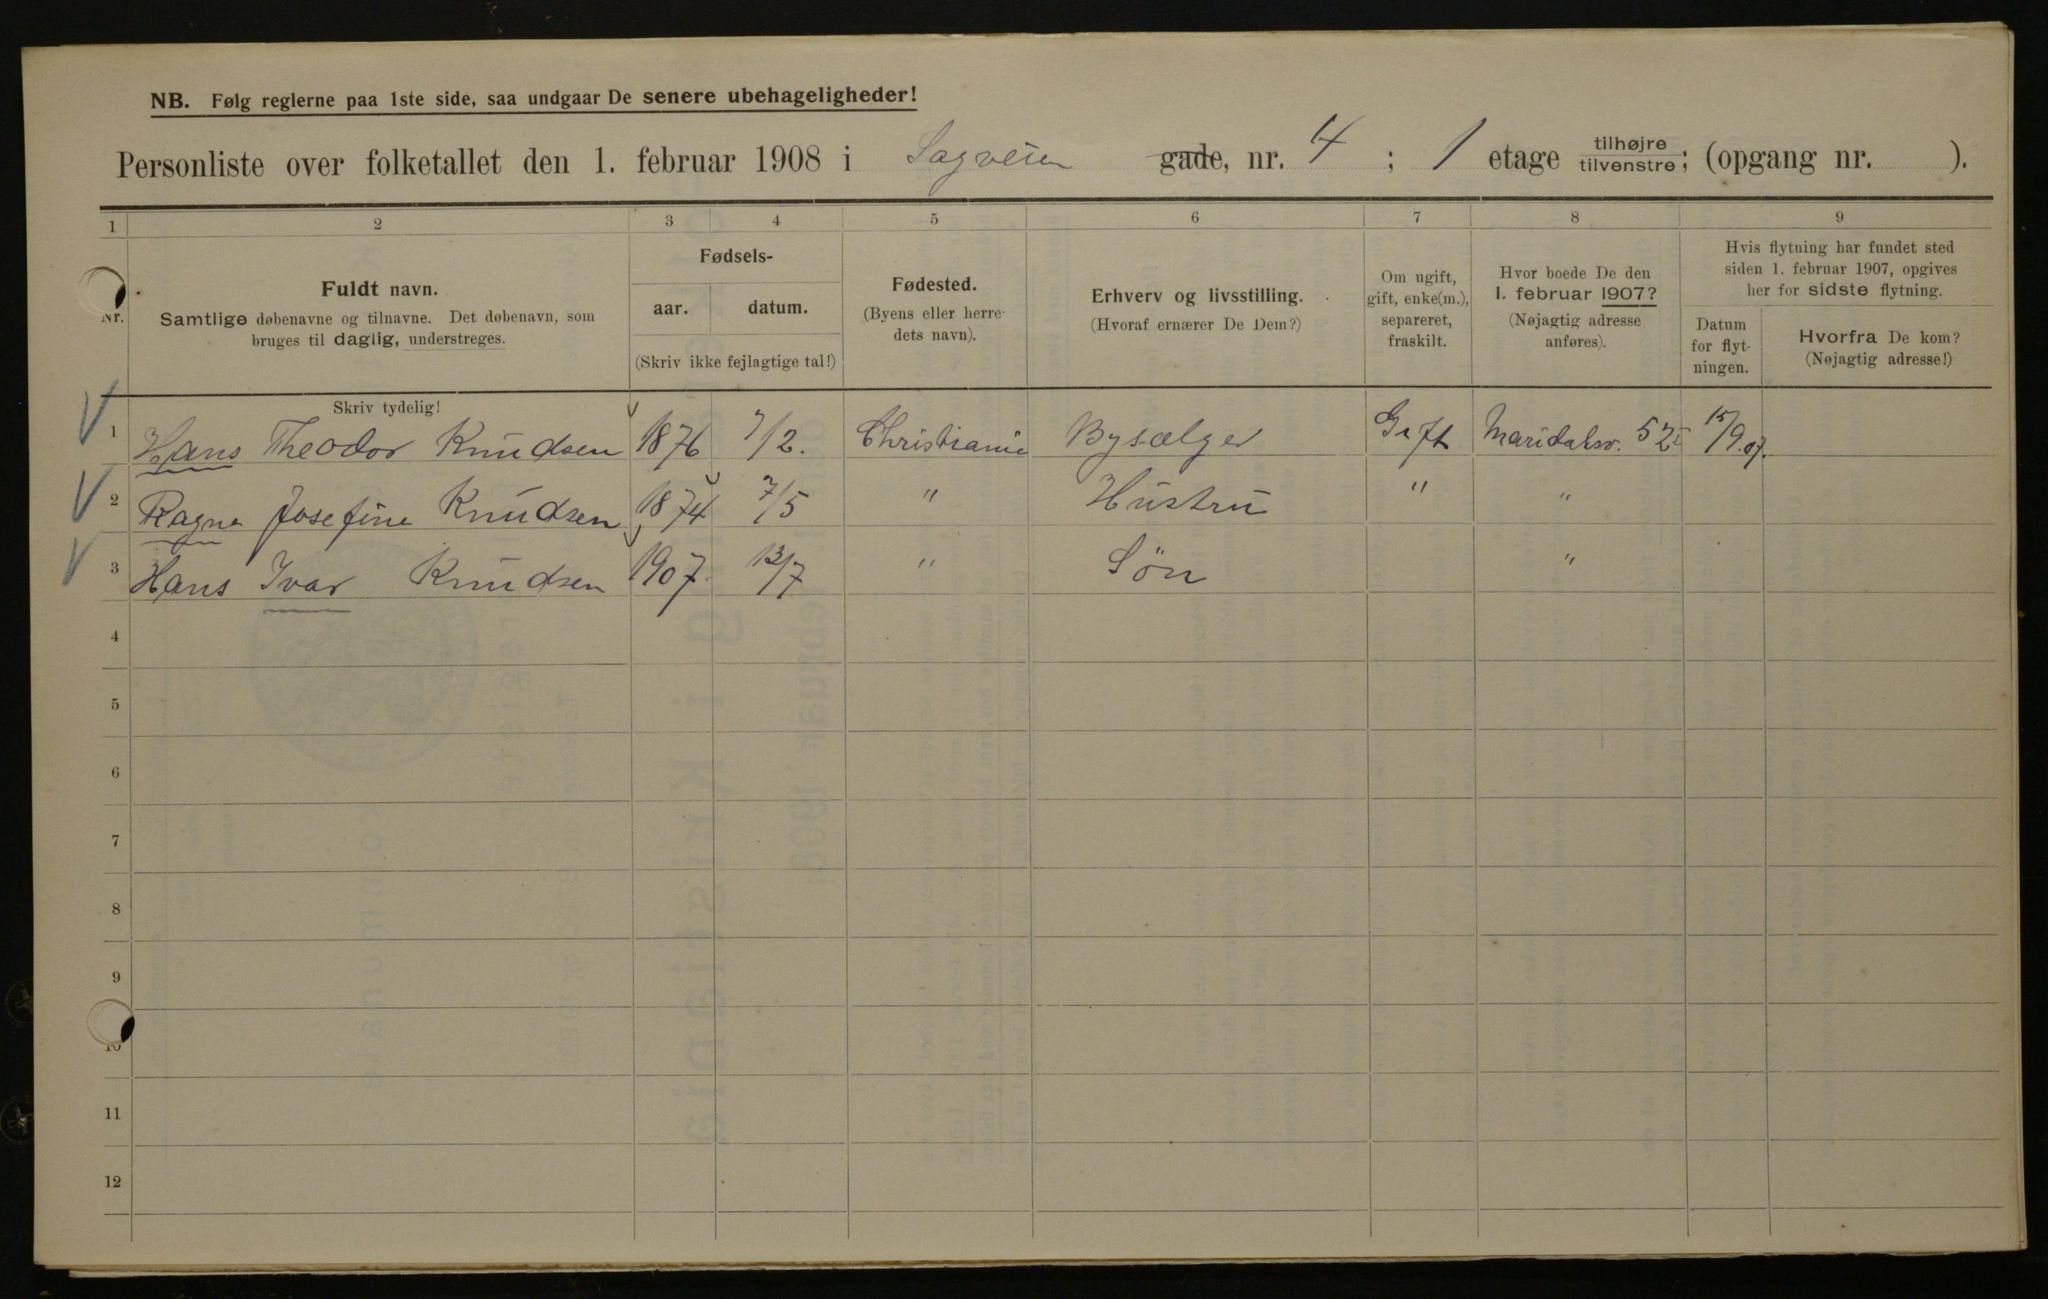 NB. Følg reglerne paa 1ste side, saa undgaar De senere ubehageligheder!
Personliste over folketallet den 1. februar 1908 i Sagveien gade, nr. 4 ; 1 etage tilhøjre tilvenstre; (opgang nr. ).
1 2 3 4 5 6 7 8 9
Nr.
Fuldt navn.
Samtlige døbenavne og tilnavne. Det døbenavn, som
bruges til daglig, understreges.
Skriv tydelig!
Fødsels-
aar. datum.
(Skriv ikke fejlagtige tal!)
Fødested.
(Byens eller herre-
dets navn).
Erhverv og livsstilling.
(Hvoraf ernærer De Dem?)
Om ugift,
gift, enke(m.),
separeret,
fraskilt.
Hvor boede De den
1. februar 1907?
(Nøjagtig adresse
anføres).
Hvis flytning har fundet sted
siden 1. februar 1907, opgives
her for sidste flytning.
Datum
for flyt-
ningen.
Hvorfra De kom?
(Nøjagtig adresse!)
1 Hans Theodor Knudsen 1876 7/2. Christiania Bysælger Gift Maridalsv. 15/9.07.
2 Ragna Josefine Knudsen 1874 7/5 " Hustru " "
3 Hans Ivar Knudsen 1907 13/7 " Søn "
4
5
6
7
8
9
10
11
12